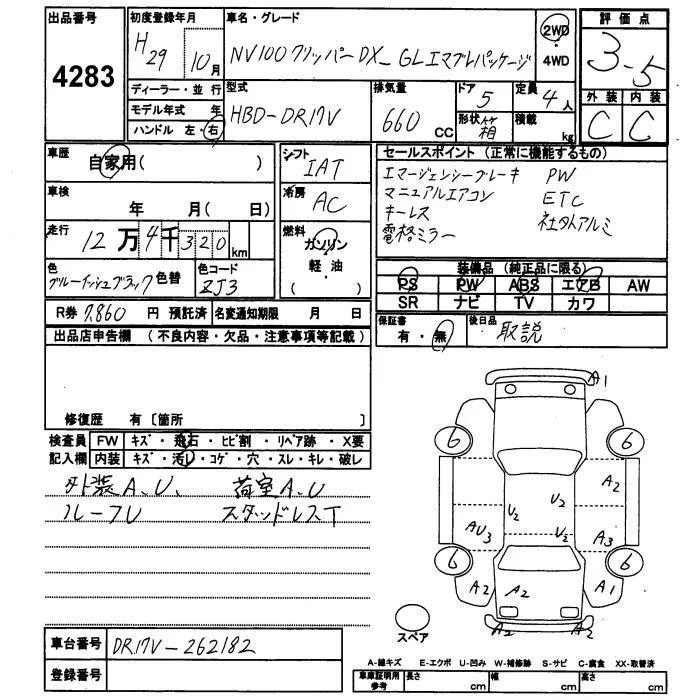 出品番号 4283
初度登録年月 H29 10月
車名・グレード NV100クリッパーDX_GLエマブレパッケージ
2WD・4WD
評価点 3.5
外装 内装
C C
ディーラー・並行
モデル年式 年
ハンドル 左・右
型式 HBD-DR17V
排気量 660 CC
ドア 5
形状 箱
定員 4人
積載 kg
車歴 自家用( )
車検 年 月( 日)
走行 12万4千320km
色 ブルーイッシュブラック 色替
色コード ZJ3
シフト IAT
冷房 AC
燃料 ガソリン
軽油
( )
セールスポイント (正常に機能するもの)
エマージェンシーブレーキ PW
マニュアルエアコン ETC
キーレス 社外アルミ
電格ミラー
装備品 (純正品に限る)
PS PW ABS エアB AW
SR ナビ TV カワ
R券 7,860 円 預託済 名変通知期限 月 日
保証書 有・無
後日品 取説
出品店申告欄 (不良内容・欠品・注意事項等記載)
修復歴 有〔箇所 〕
検査員記入欄
FW キズ・飛石・ヒビ割・リペア跡・X要
内装 キズ・汚レ・コゲ・穴・スレ・キレ・破レ
外装A.U、 荷室A.U
ルーフU スタッドレスT
A1
6 6
A2
U2
U2
AU3 U2 A3
6 6
A2 A2 A1
A2 A2
スペア
車台番号 DR17V-262182
登録番号
A-線キズ E-エクボ U-凹み W-補修跡 S-サビ C-腐食 XX-取替済
車庫証明用参考 長さ cm 幅 cm 高さ cm